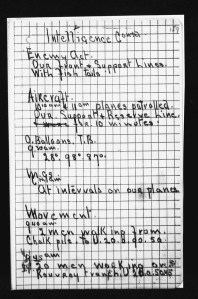 Intelligence Contd
Enemy Act.
Our Front & Support Lines.
With fish tails.
Aircraft.
planes patrolled
Our Support & Reserve Line
for 10 minutes.
O. Balloons. T.B.
9.00am.
28° 98° 870.
M.Gs
At intervals on our planes
Movement.
9.40am
2 men walking from
Chalk pile to U.20.b.90.50.
9.45am
20 men walking on
Rouvray Trench. U